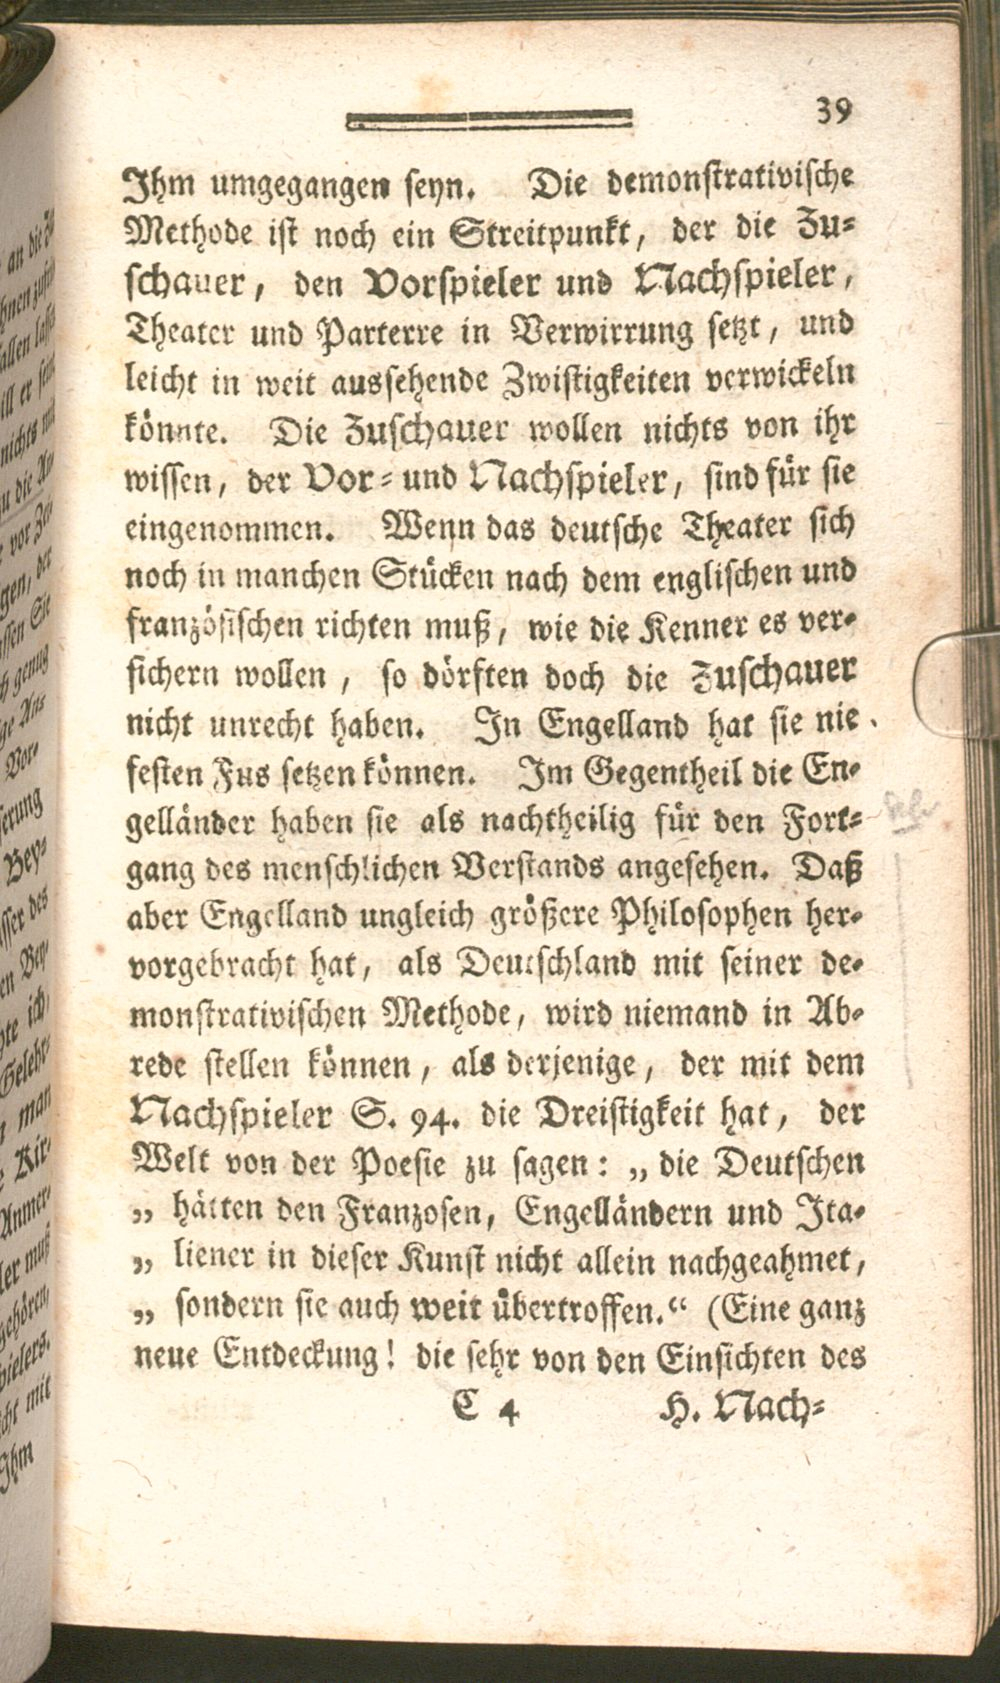 39
Ihm umgegangen seyn. Die demonstrativische
Methode ist noch ein Streitpunkt, der die Zu-
schauer, den Vorspieler und Nachspieler,
Theater und Parterre in Verwirrung setzt, und
leicht in weit aussehende Zwistigkeiten verwickeln
könnte. Die Zuschauer wollen nichts von ihr
wissen, der Vor- und Nachspieler, sind für sie
eingenommen. Wenn das deutsche Theater sich
noch in manchen Stücken nach dem englischen und
französischen richten muß, wie die Kenner es ver-
sichern wollen, so dörften doch die Zuschauer
nicht unrecht haben. In Engelland hat sie nie
festen Fus setzen können. Im Gegentheil die En-
gelländer haben sie als nachtheilig für den Fort-
gang des menschlichen Verstands angesehen. Daß
aber Engelland ungleich größere Philosophen her-
vorgebracht hat, als Deutschland mit seiner de-
monstrativischen Methode, wird niemand in Ab-
rede stellen können, als derjenige, der mit dem
Nachspieler S. 94. die Dreistigkeit hat, der
Welt von der Poesie zu sagen: „ die Deutschen
„ hätten den Franzosen, Engelländern und Ita-
„ liener in dieser Kunst nicht allein nachgeahmet,
„ sondern sie auch weit übertroffen.“ (Eine ganz
neue Entdeckung! die sehr von den Einsichten des
C 4 H. Nach-